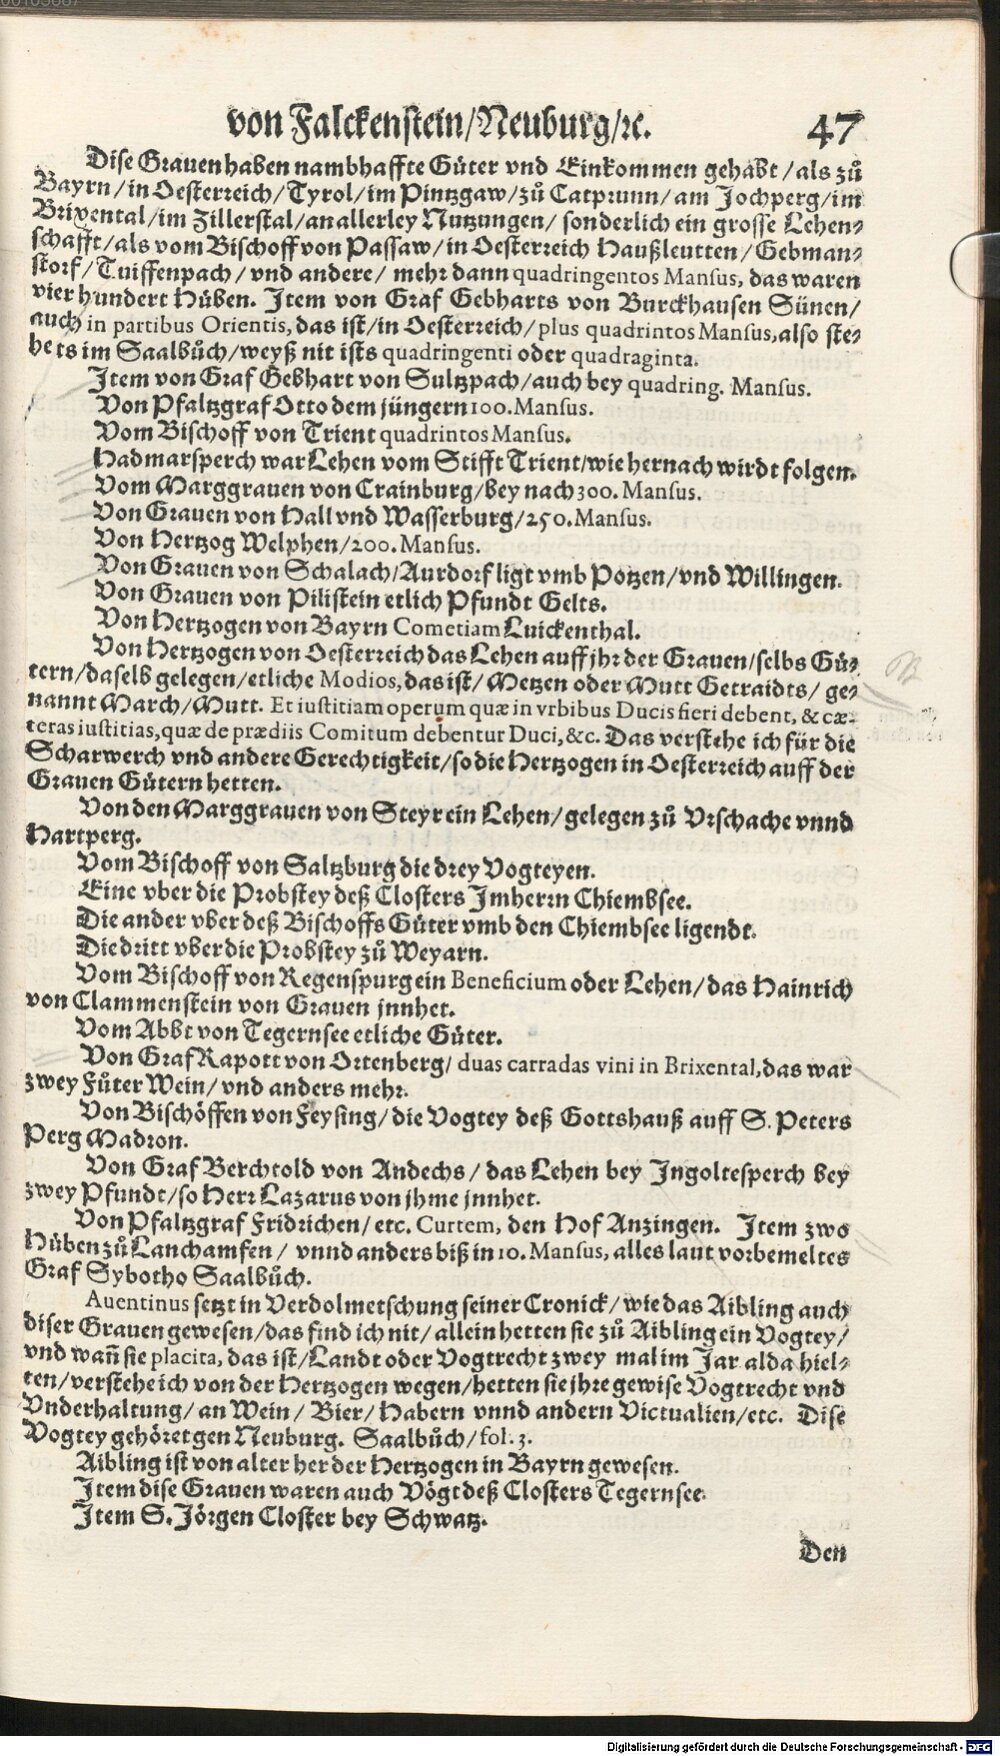 von Falckenstein/Neuburg/ꝛc. 47
Dise Grauen haben nambhaffte Güter vnd Einkommen gehabt/als zů
Bayrn/in Oesterreich/Tyrol/im Pintzgaw/zů Catprunn/am Jochperg/im
Brixental/im Zillerstal/an allerley Nutzungen/ sonderlich ein grosse Lehen⸗
schafft/als vom Bischoff von Passaw/in Oesterreich Haußleutten/Gebman⸗
storf/Tuiffenpach/vnd andere/mehr dann quadringentos Mansus, das waren
vier hundert Hüben. Item von Graf Gebharts von Burckhausen Sünen/
auch in partibus Orientis, das ist/in Oesterreich/plus quadrintos Mansus, also ste⸗
hets im Saalbůch/weyß nit ists quadringenti oder quadraginta.
Item von Graf Gebhart von Sultzpach/auch bey quadring. Mansus.
Von Pfaltzgraf Otto dem jüngern 100. Mansus.
Vom Bischoff von Trient quadrintos Mansus.
Hadmarsperch war Lehen vom Stifft Trient/wie hernach wirdt folgen.
Vom Marggrauen von Crainburg/bey nach 300. Mansus.
Von Grauen von Hall vnd Wasserburg/250. Mansus.
Von Hertzog Welphen/200. Mansus.
Von Grauen von Schalach/Aurdorf ligt vmb Potzen/vnd Willingen.
Von Grauen von Pilistein etlich Pfundt Gelts.
Von Hertzogen von Bayrn Cometiam Luickenthal.
Von Hertzogen von Oesterreich das Lehen auff jhr der Grauen/selbs Gü⸗
tern/daselb gelegen/etliche Modios, das ist/Metzen oder Mutt Getraidts/ ge⸗
nannt March/Mutt. Et iustitiam operum quæ in vrbibus Ducis fieri debent, & cæ-
teras iustitias, quæ de prædiis Comitum debentur Duci, &c. Das verstehe ich für die
Scharwerch vnd andere Gerechtigkeit/so die Hertzogen in Oesterreich auff der
Grauen Gütern hetten.
Von den Marggrauen von Steyr ein Lehen/gelegen zů Vrschache vnnd
Hartperg.
Vom Bischoff von Saltzburg die drey Vogteyen.
Eine vber die Probstey deß Closters Jmherrn Chiembsee.
Die ander vber deß Bischoffs Güter vmb den Chiembsee ligendt.
Die dritt vber die Probstey zů Weyarn.
Vom Bischoff von Regenspurg ein Beneficium oder Lehen/das Hainrich
von Clammenstein von Grauen jnnhet.
Vom Abbt von Tegernsee etliche Güter.
Von Graf Rapott von Ortenberg/ duas carradas vini in Brixental, das war
zwey Fůter Wein/vnd anders mehr.
Von Bischöffen von Feysing/die Vogtey deß Gottshauß auff S. Peters
Perg Madron.
Von Graf Berchtold von Andechs/das Lehen bey Ingoltesperch bey
zwey Pfundt/so Herr Lazarus von jhme jnnhet.
Von Pfaltzgraf Fridrichen/etc. Curtem, den Hof Anzingen. Item zwo
Hüben zů Lanchamsen/ vnnd anders biß in 10. Mansus, alles laut vorbemeltes
Graf Sybotho Saalbůch.
Auentinus setzt in Verdolmetschung seiner Cronick/wie das Aibling auch
diser Grauen gewesen/das find ich nit/allein hetten sie zů Aibling ein Vogtey/
vnd wañ sie placita, das ist/Landt oder Vogtrecht zwey mal im Jar alda hiel⸗
ten/verstehe ich von der Hertzogen wegen/hetten sie jhre gewise Vogtrecht vnd
Vnderhaltung/an Wein/Bier/Habern vnnd andern Victualien/etc. Dise
Vogtey gehöret gen Neuburg. Saalbůch/fol. 3.
Aibling ist von alter her der Hertzogen in Bayrn gewesen.
Item dise Grauen waren auch Vögt deß Closters Tegernsee.
Item S. Jörgen Closter bey Schwatz.
Den
Digitalisierung gefördert durch die Deutsche Forschungsgemeinschaft - DFG